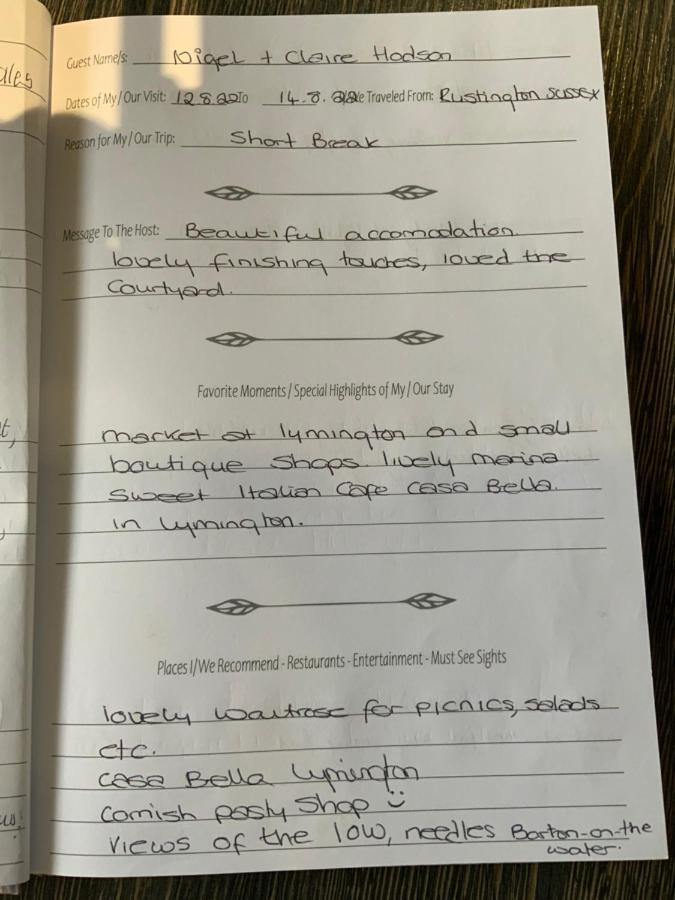 ales
Guest Name/s: Nigel + Claire Hodson
Dates of My / Our Visit: 12.8.22 To 14.8.22 We Traveled From: Rustington Sussex
Reason for My / Our Trip: Short Break
Message To The Host: Beautiful accomodation.
lovely finishing touches, loved the
Courtyard.
Favorite Moments / Special Highlights of My / Our Stay
t,
market at lymington and small
boutique shops. lively marina
sweet Italian Cafe Casa Bella.
in Lymington.
Places I/We Recommend - Restaurants - Entertainment - Must See Sights
lovely waitrose for picnics, salads
etc.
casa Bella Lymington
Cornish pasty Shop
us
views of the IOW, needles Barton-on-the
water.